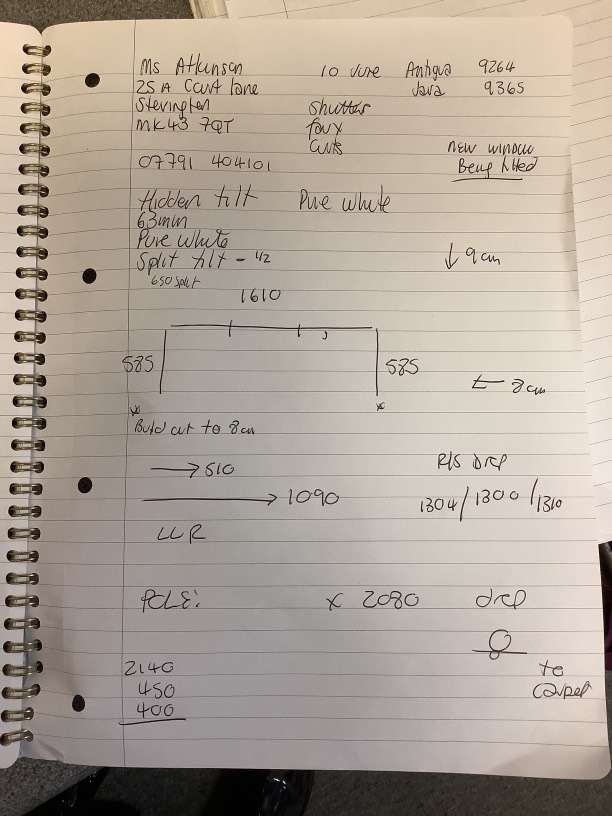 Ms Atkinson 10 June Antigua 9264
25A Court Lane Java 9365
Stevington Shutter
MK43 7QT faux
new window
07791 404101 Being fitted
Hidden tilt Pure white
63mm
Pure white
Split tilt - 1/2 ↓ 9cm
650 split
1610
585 585
← 8cm
Build out to 8cm
→ 510 R/S Drop
→ 1090 1304/1300/1310
LLR
POLE: x 2080 drop
2140 to
450 carpet
400